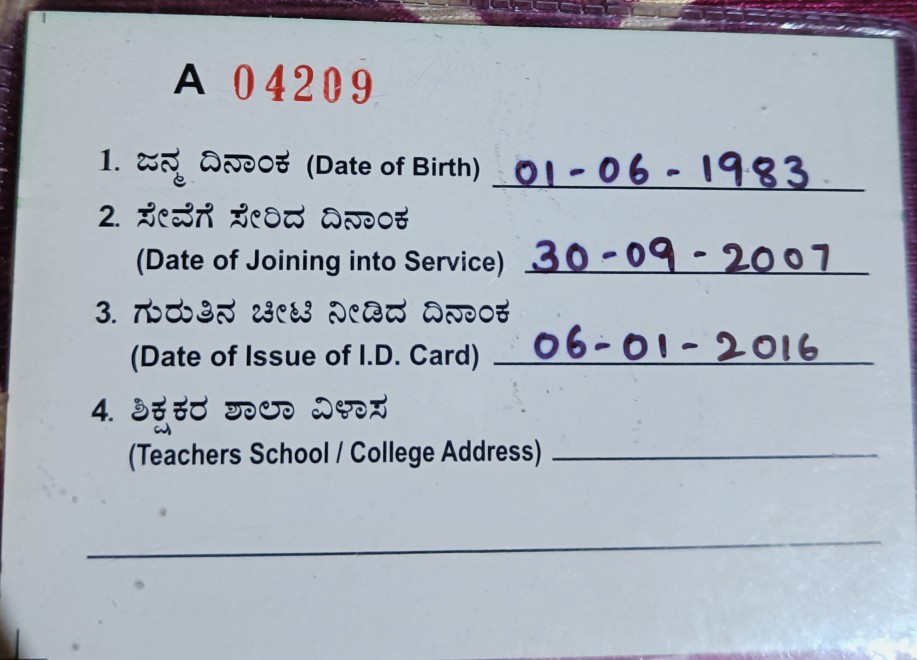 A 04209
1. ಜನ್ಮ ದಿನಾಂಕ (Date of Birth) 01-06-1983
2. ಸೇವೆಗೆ ಸೇರಿದ ದಿನಾಂಕ
(Date of Joining into Service) 30-09-2007
3. ಗುರುತಿನ ಚೀಟಿ ನೀಡಿದ ದಿನಾಂಕ
(Date of Issue of I.D. Card) 06-01-2016
4. ಶಿಕ್ಷಕರ ಶಾಲಾ ವಿಳಾಸ
(Teachers School / College Address)